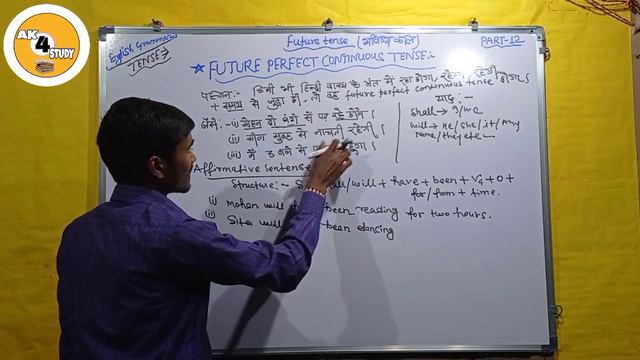 AK
4
STUDY
English Grammar
TENSE
Future tense (भविष्य काल)
PART-12
★ FUTURE PERFECT CONTINUOUS TENSE:-
पहचान:- किसी भी हिन्दी वाक्य के अंत में रहा होगा, रहेगा, रहेगी
+ समय से जुड़ा हो, तो वह future perfect continuous tense होगा।
जैसे:- (i) मोहन दो घंटो से पढ़ रहे होंगे।
(ii) सीता सुबह से नाचती रहेगी।
(iii) मैं 3 बजे से
याद:-
shall → I/we
will → He/she/it/my
name/they/etc
Affirmative Sentence
Structure:- /will + have + been + V₄ + O +
for/from + time.
(i) Mohan will been reading for two hours.
(ii) Sita will been dancing